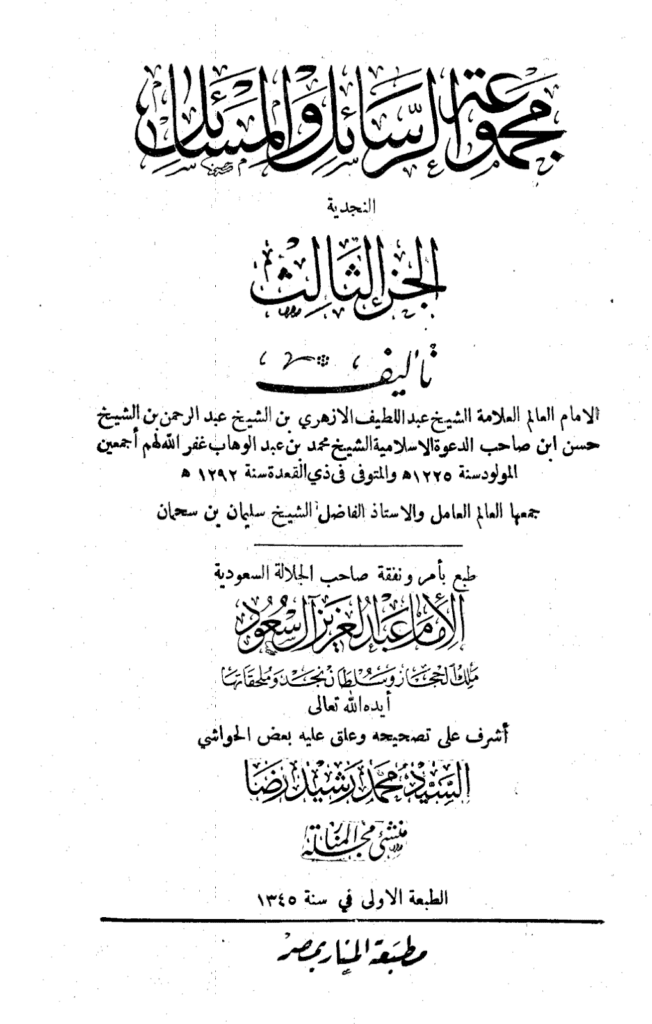 مجموعة الرسائل والمسائل
النجدية
الجزء الثالث
تأليف
الامام العالم العلامة الشيخ عبد اللطيف الازهري بن الشيخ عبد الرحمن بن الشيخ
حسن ابن صاحب الدعوة الاسلامية الشيخ محمد بن عبد الوهاب غفر الله لهم أجمعين
المولود سنة ١٢٢٥ھ والمتوفى في ذي القعدة سنة ١٢٩٢ ھ
جمعها العالم العامل والاستاذ الفاضل الشيخ سليمان بن سحمان
طبع بأمر ونفقة صاحب الجلالة السعودية
الإمام عبد العزيز آل سعود
ملك الحجاز وسلطان نجد وملحقاتها
أيده الله تعالى
أشرف على تصحيحه وعلق عليه بعض الحواشي
السيد محمد رشيد رضا
منشئ مجلة المنار
الطبعة الاولى في سنة ١٣٤٥
مطبعة المنار بمصر